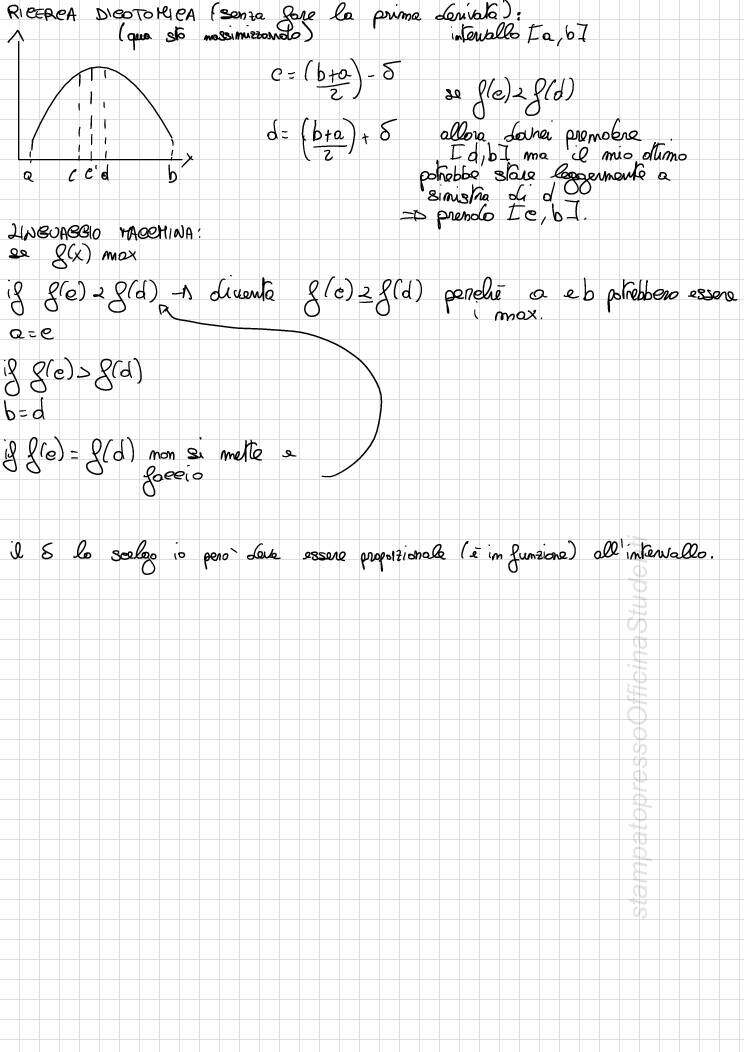 RICERCA DICOTOMICA (senza fare la prima derivata):
(qua sto massimizzando)
intervallo [a,b]
c = (b+a/2) - δ
se f(c) < f(d)
d = (b+a/2) + δ
allora dovrei prendere
[d,b] ma il mio ottimo
potrebbe stare leggermente a
sinistra di d
⇒ prendo [c,b].
a c c' d b x
LINGUAGGIO MACCHINA:
se f(x) max
if f(c) < f(d) → diventa f(c) ≤ f(d) perché a e b potrebbero essere
i max.
a=c
if f(c) > f(d)
b=d
if f(c) = f(d) non si mette e
faccio
il δ lo scelgo io però deve essere proporzionale (è in funzione) all'intervallo.
stampatopressoOfficinaStudenti